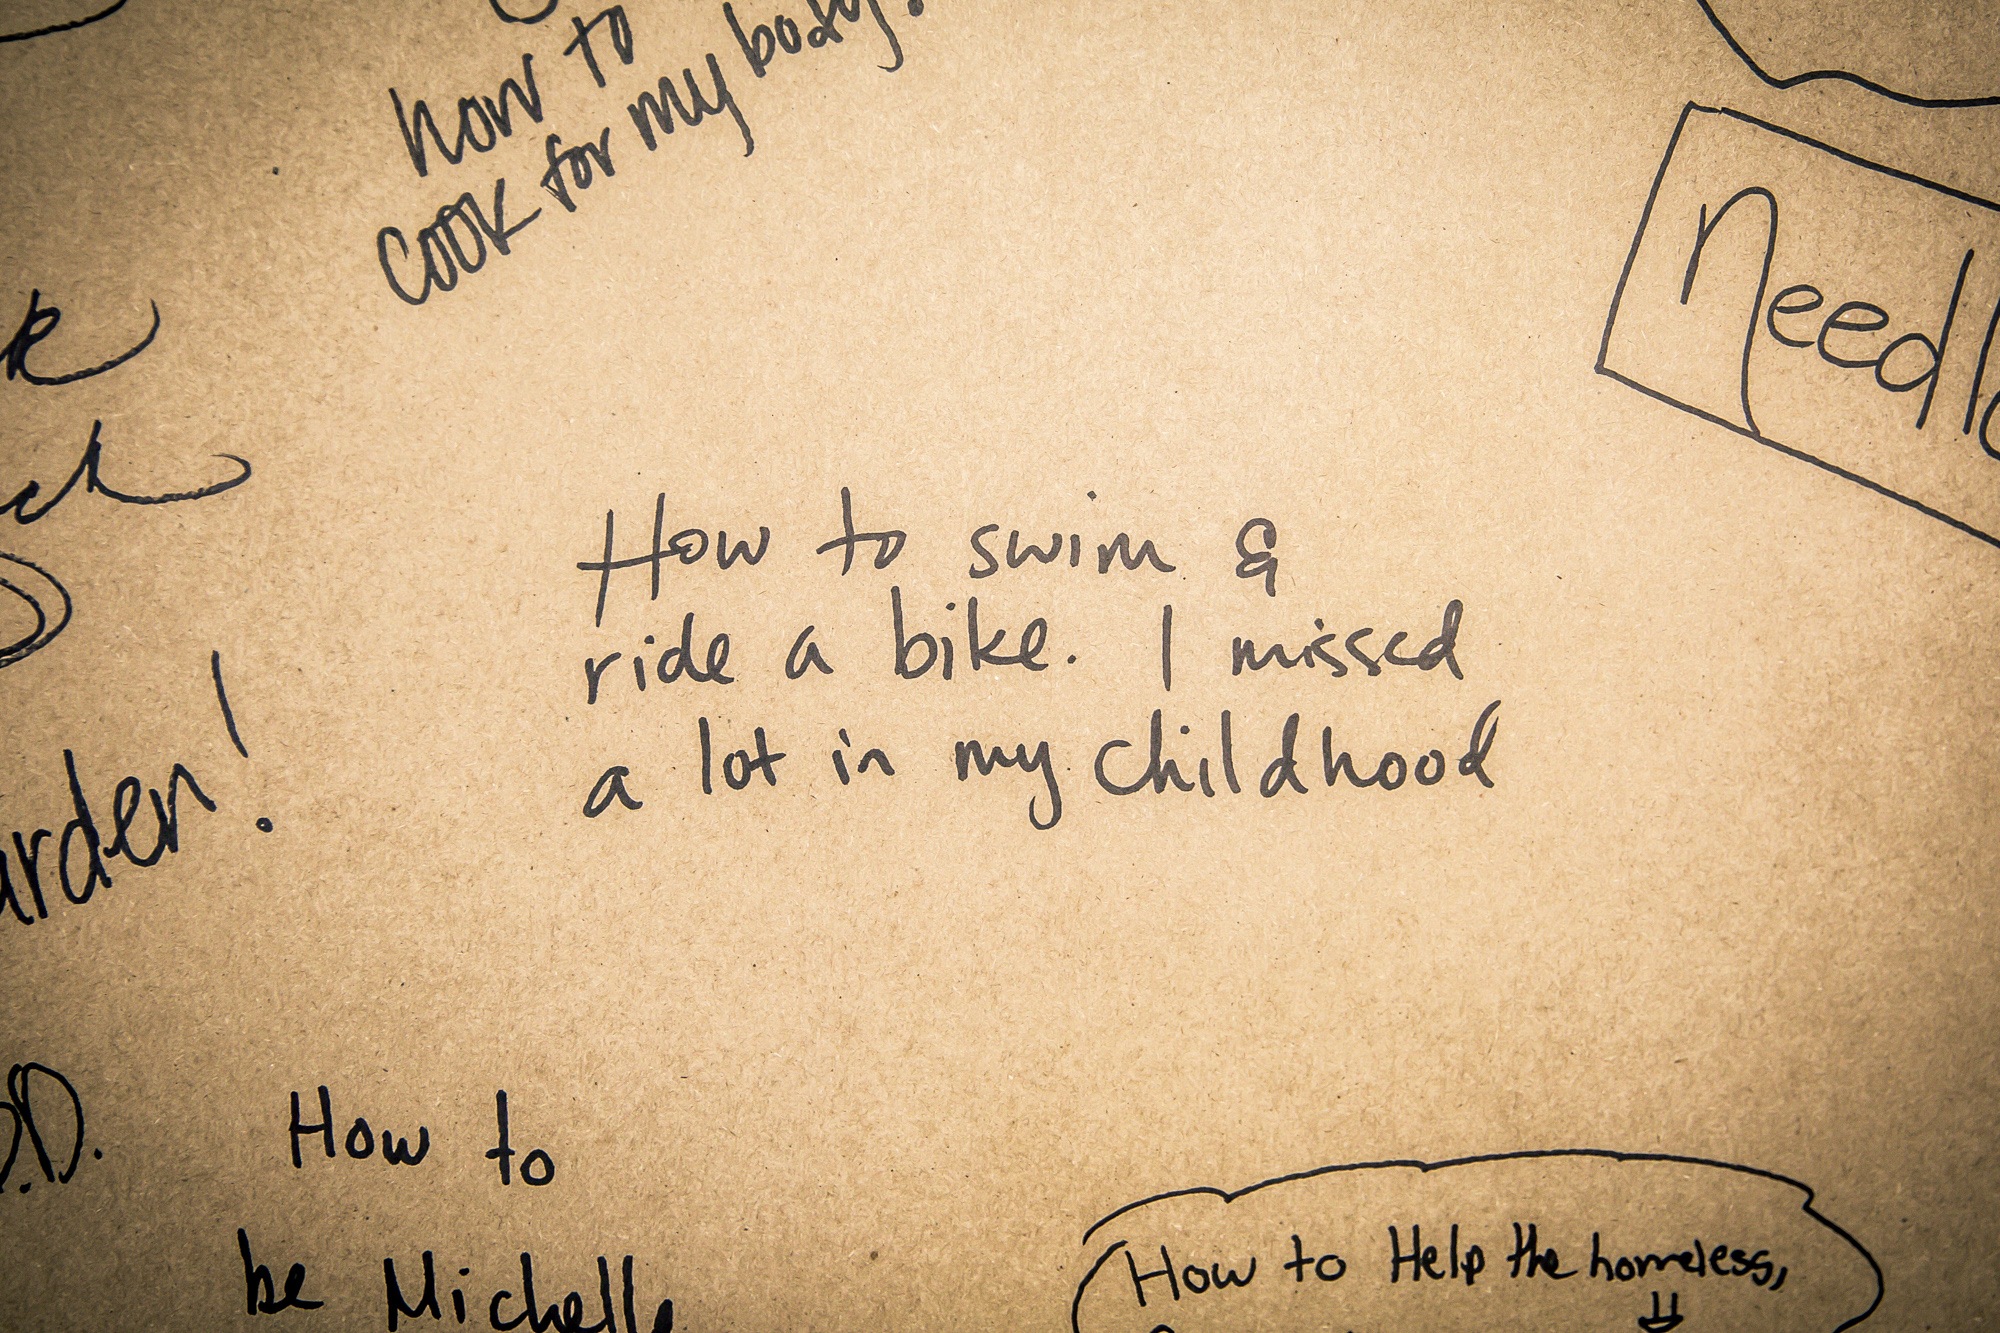 how to
cook for my body.
How to swim &
ride a bike. I missed
a lot in my childhood
How to
be Michelle
How to Help the homeless,